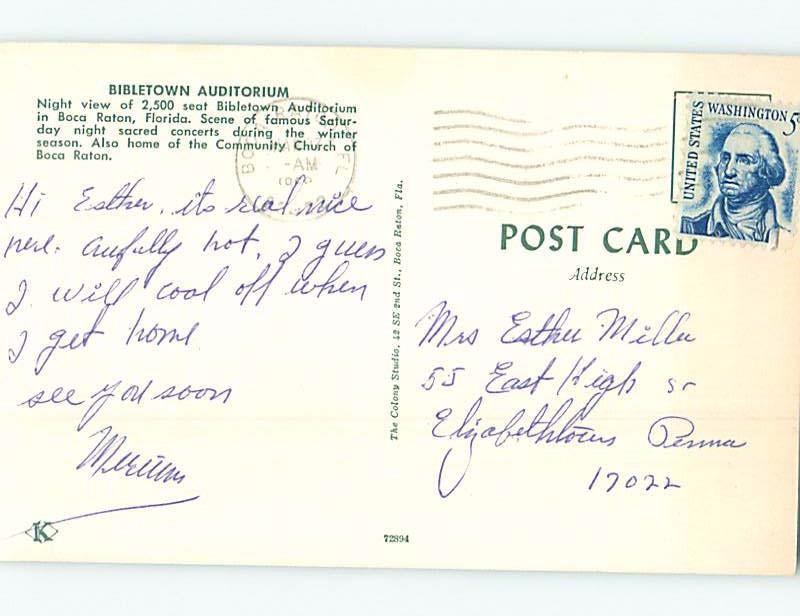 BIBLETOWN AUDITORIUM
Night view of 2,500 seat Bibletown Auditorium
in Boca Raton, Florida. Scene of famous Satur-
day night sacred concerts during the winter
season. Also home of the Community Church of
Boca Raton.
AM
Hi Esther, its real nice
here. awfully hot, I guess
I will cool off when
I get home
see you soon
K
The Colony Studio, 42 SE 2nd St., Boca Raton, Fla.
72894
UNITED STATES
WASHINGTON 5
POST CARD
Address
Mrs Esther Miller
55 East High St
Elizabethtown Penna
17022